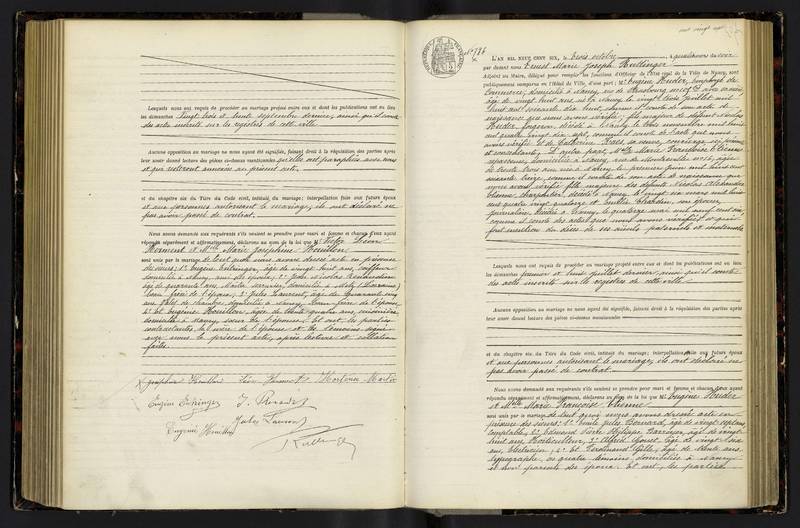 Lesquels nous ont requis de procéder au mariage projeté entre eux et dont les publications ont eu lieu
les dimanches vingt trois et trente septembre dernier, ainsi qu'il conste
des actes inscrits sur les registres de cette ville
Aucune opposition au mariage ne nous ayant été signifiée, faisant droit à la réquisition des parties
après leur avoir donné lecture des pièces ci-dessus mentionnées qu'elles ont paraphées avec nous
et qui resteront annexées au présent acte
et du chapitre six du Titre du Code civil, intitulé du mariage; interpellation faite aux futurs époux
et aux personnes autorisant le mariage, ils ont déclaré ne
pas avoir passé de contrat.
Nous avons demandé aux requérants s'ils veulent se prendre pour mari et femme et chacun d'eux ayant
répondu séparément et affirmativement, déclarons au nom de la loi que M. Victor Léon
Hermant et Mlle Marie Joséphine Houillon
sont unis par le mariage de tout quoi nous avons dressé acte en présence
de vingt huit ans, coiffeur
domicilié à Nancy, 2° Jean Nicolas
âgé de quarante ans, domicilié à Metz (Lorraine)
3° Jules Laurent, âgé de quarante
ans, valet de chambre, domicilié à Nancy, beau-frère de l'épouse
4° Et Eugénie Houillon, âgée de trente quatre ans, cuisinière,
domiciliée à Nancy, sœur de l'épouse. Et ont, les parties
contractantes, la mère de l'épouse et les témoins signé
avec nous le présent acte, après lecture et collation
faites.
Houillon Léon Hermant
Eugène
Jules Laurent
Eugénie Houillon
N° 736
L'AN MIL NEUF CENT SIX, le trois octobre à quatre heures du soir
par devant nous Ernest Marie Joseph Hullinger
Adjoint au Maire, délégué pour remplir les fonctions d'Officier de l'État civil de la Ville de Nancy, sont
publiquement comparus en l'Hôtel de Ville, d'une part : M. Eugène Huder, employé de
Commerce, domicilié à Nancy, rue de Strasbourg
âgé de vingt huit ans, né à Nancy le vingt trois juillet mil
huit cent soixante dix huit, comme il conste de son acte de
naissance que nous avons vérifié; fils majeur de défunt Nicolas
Huder, forgeron, décédé à Nancy le trois novembre mil huit
cent quatre vingt dix sept, comme il conste de l'acte que nous
avons vérifié et de Catherine sa veuve, concierge
et consentante. D'autre part, Mlle Marie Françoise Etienne
repasseuse, domiciliée à Nancy, âgée
de trente trois ans, née à Nancy le premier juin mil huit cent
soixante treize, comme il conste de son acte de naissance que
nous avons vérifié, fille majeure des défunts Nicolas Alexandre
Etienne, charpentier, décédé à Nancy le vingt six mars mil huit
cent quatre vingt quatorze et son épouse,
journalière, décédée à Nancy, le quatorze avril mil neuf cent six,
comme il conste des actes que nous avons vérifiés et qui
font mention du décès de ses aïeuls paternels et maternels
Lesquels nous ont requis de procéder au mariage projeté entre eux et dont les publications ont eu lieu
les dimanches premier et huit juillet dernier, ainsi qu'il conste
des actes inscrits sur les registres de cette ville
Aucune opposition au mariage ne nous ayant été signifiée, faisant droit à la réquisition des parties après
leur avoir donné lecture des pièces ci-dessus mentionnées
et du chapitre six du Titre du Code civil, intitulé du mariage; interpellation faite aux futurs époux
et aux personnes autorisant le mariage, ils ont déclaré ne
pas avoir passé de contrat.
Nous avons demandé aux requérants s'ils veulent se prendre pour mari et femme et chacun d'eux ayant
répondu séparément et affirmativement, déclarons au nom de la loi que M. Eugène Huder
et Mlle Marie Françoise Etienne
sont unis par le mariage de tout quoi nous avons dressé acte en
présence des sieurs: 1° Emile Jules Bernard, âgé de vingt sept ans,
comptable; 2° Edmond Pierre Philippe âgé de vingt
huit ans, horticulteur, 3° Alfred âgé de vingt six
ans, électricien; 4° Et Ferdinand Gille, âgé de trente ans,
typographe, ces quatre témoins domiciliés à Nancy
et non parents des époux. Et ont, les parties